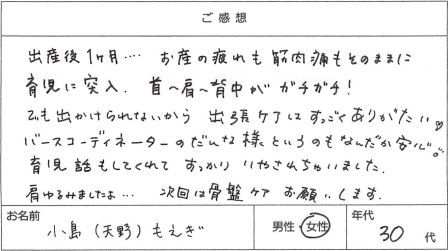 ご感想
出産後1ヶ月‥‥ お産の疲れも筋肉痛もそのままに
育児に突入. 首〜肩〜背中がガチガチ!
でも出かけられないから 出張ケアはすっごくありがたい♡
バースコーディネーターのだんな様というのもなんだか安心。
育児話もしてくれて すっかり いやされちゃいました.
肩ゆるみましたよ… 次回は骨盤ケア お願いします.
お名前 小島(天野)もえぎ 男性・女性 年代 30代